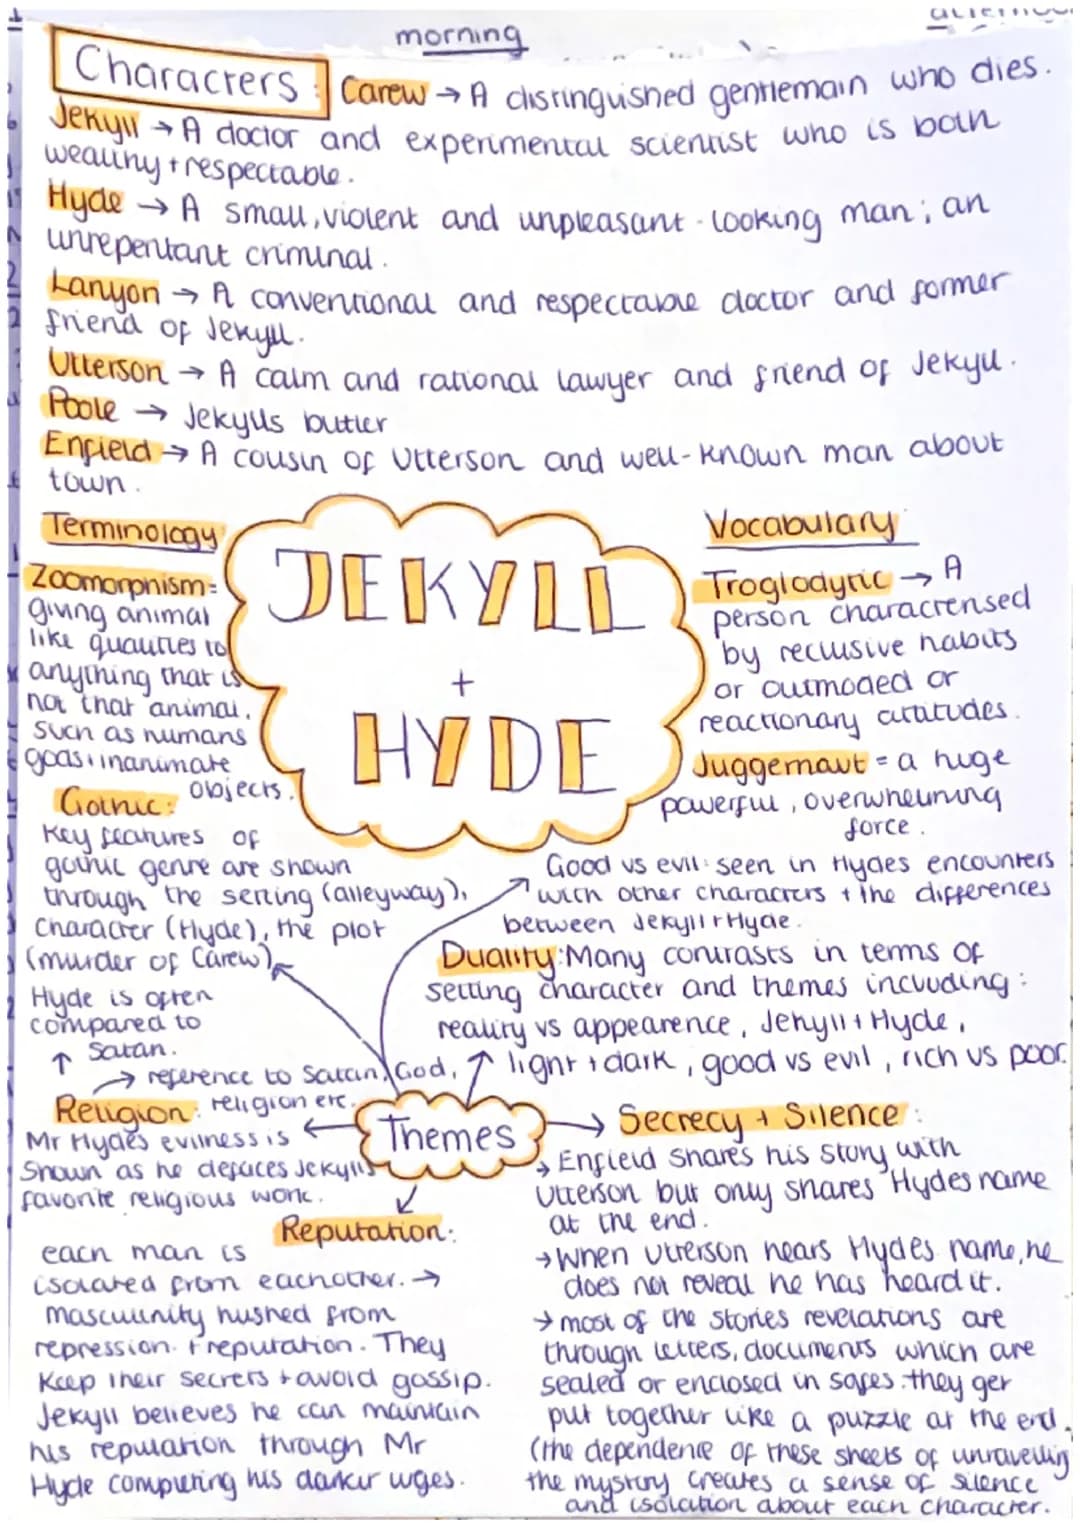 morning
Characters:
Carew → A distinguished gentlemain who dies.
Jekyll → A doctor and experimental scientist who is both
wealthy + respectable.
Hyde → A small, violent and unpleasant-looking man; an
unrepentant criminal.
Lanyon → A conventional and respectable doctor and former
friend of Jekyll.
Utterson → A calm and rational lawyer and friend of Jekyll.
Poole → Jekylls butler
Enfield → A cousin of Utterson and well-known man about
town.
Terminology
Zoomorphism=
giving animal
like qualities to
anything that is
not that animal,
such as humans
gods, inanimate
objects.
Gothic:
Key features of
gothic genre are shown
through the setting (alleyway),
character (Hyde), the plot
(murder of Carew)
JEKYLL
+
HYDE
Vocabulary
Troglodytic → A
person characterised
by reclusive habits
or outmoded or
reactionary attitudes.
Juggernaut = a huge
powerful, overwhelming
force.
Good vs evil: seen in Hydes encounters
with other characters + the differences
between Jekyll + Hyde.
Duality: Many contrasts in terms of
setting character and themes including:
reality vs appearence, Jekyll + Hyde,
↑ light + dark, good vs evil, rich vs poor.
Hyde is often
compared to
↑ Satan.
→ reference to Satan, God,
Religion: religion etc.
Mr Hydes evilness is
shown as he defaces Jekylls
favorite religious work.
Themes
Reputation:
each man is
isolated from eachother. →
masculinity hushed from
repression + reputation. They
keep their secrets + avoid gossip.
Jekyll believes he can maintain
his reputation through Mr
Hyde completing his darker urges.
Secrecy + Silence:
→ Enfield shares his story with
Utterson but only shares Hydes name
at the end.
→ When Utterson hears Hydes name, he
does not reveal he has heard it.
→ most of the stories revelations are
through letters, documents which are
sealed or enclosed in safes. they get
put together like a puzzle at the end.
(the dependence of these sheets of unravelling
the mystery creates a sense of silence
and isolation about each character.